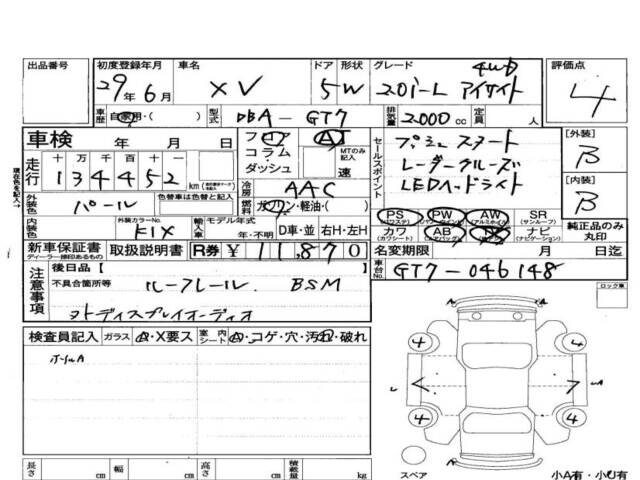 出品番号 初度登録年月 車名 ドア 形状 グレード 評価点
29年6月 XV 5 W 4WD 2.0i-L アイサイト 4
車歴 自家用・( ) 型式 DBA-GT7 排気量 2000cc 定員 人
車検 年 月 日 フロア AT セールスポイント プッシュスタート [外装]
走行 十万千百十 134452 km コラム MTのみ記入 レーダークルーズ B
ダッシュ 速 LEDヘッドライト [内装]
外装色 パール 色替車は色替と記入 冷房 AAC B
燃料 ガソリン・軽油・( ) PS PW AW SR 純正品のみ丸印
(パワステ) (パワーウインドウ) (アルミホイル) (サンルーフ)
内装色 外装カラーNo. K1X 輸入車 モデル年式 年・不明 D車・並 右H・左H カワ AB ナビ
(カワシート) (エアバッグ) (ナビゲーション)
新車保証書 取扱説明書 R券 ¥11,870 名変期限 月 日迄
ディーラー捺印あるもの
注意事項 後日品[ ] 車台No. GT7-046148
不具合箇所等 ルーフレール BSM ロック車
ヌキディスプレイオーディオ
検査員記入 ガラス A・X要ス 室内シート A・コゲ・穴・汚れ・破れ
ホイルA
4 4
A
4 4
長さ cm 幅 cm 高さ cm 積載量 kg スペア 小A有・小U有
現在色を記入→